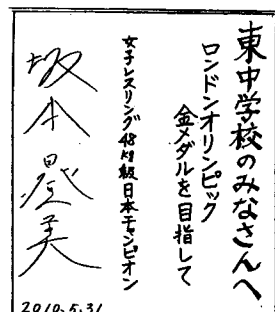 東中学校のみなさんへ
ロンドンオリンピック
金メダルを目指して
女子レスリング48kg級日本チャンピオン
坂本日登美
2010.5.31